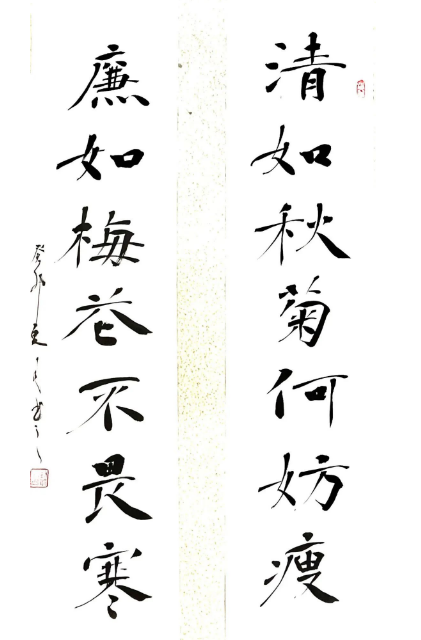 清如秋菊何妨瘦
廉如梅花不畏寒
癸卯夏